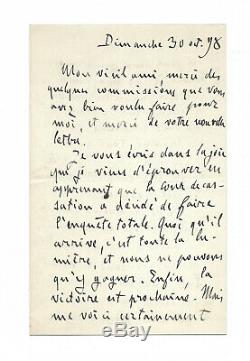 Dimanche 30 oct. 98
Mon vieil ami merci des
quelques commissions que vous
avez bien voulu faire pour
moi, et merci de votre nouvelle
lettre.
Je vous écris dans la joie
que je viens d'éprouver en
apprenant que la cour de cas-
sation a décidé de faire
l'enquête totale. Quoi qu'il
arrive, c'est toute la lu-
mière, et nous ne pouvons
qu'y gagner. Enfin, la
victoire est prochaine. Mais
me voici certainement